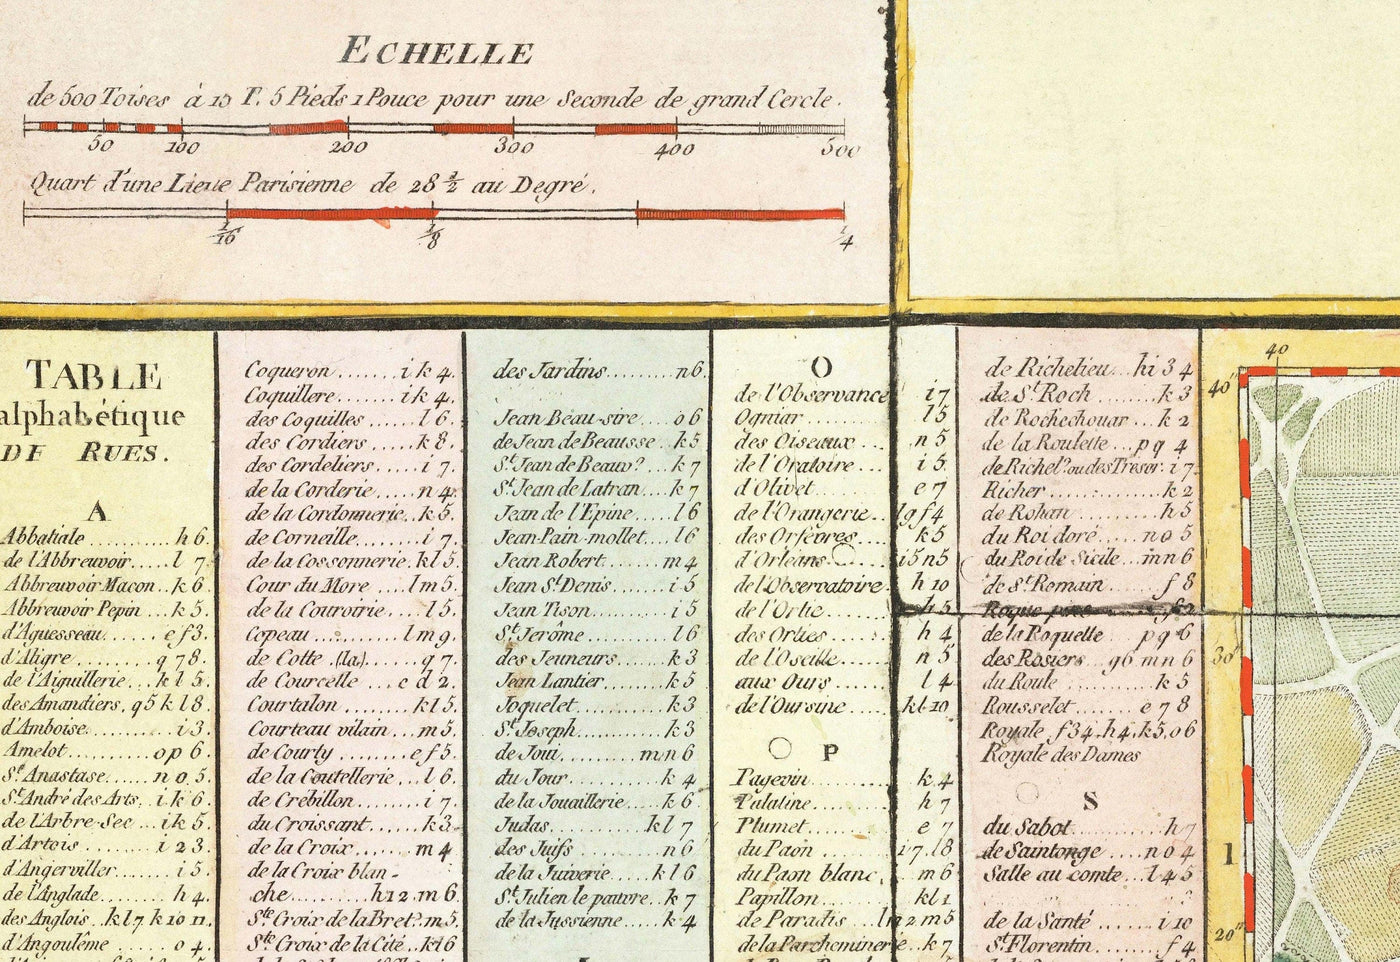 ECHELLE
de 500 Toises à 15 T. 5 Pieds 1 Pouce pour une Seconde de grand Cercle.
50 100 200 300 400 500
Quart d'une Lieue Parisienne de 28 ½ au Degré.
1/16 1/8 1/4
TABLE
alphabétique
DE RUES.
A
Abbatiale h 6.
de l'Abbreuvoir l 7
Abbreuvoir Macon k 6
Abbreuvoir Pepin k 5.
d'Aguesseau e f 3.
d'Aligre q 7 8.
de l'Aiguillerie k l 5
des Amandiers, q 5 k l 8
d'Amboise i 3.
Amelot o p 6.
Ste. Anastase n o 5.
St. André des Arts i k 6
de L'Arbre Sec i k 5
d'Artois i 2 3
d'Angerviller i 5.
de l'Anglade h 4.
des Anglois k l 7 k 10 11.
d'Angoulême o 4.
Coqueron i k 4.
Coquillere i k 4.
des Coquilles l 6.
des Cordiers k 8.
des Cordeliers i 7.
de la Corderie n 4.
de la Cordonnerie k 5.
de Corneille i 7.
de la Cossonnerie kl 5
Cour du More l m 5.
de la Couroirie l 5.
Copeau l m 9.
de Cotte (la) q 7.
de Courcelle c d 2.
Courtalon k l 5.
Courteau vilain m 5.
de Courty e f 5.
de la Coutellerie l 6.
de Crébillon i 7.
du Croissant k 3.
de la Croix m 4
de la Croix blan-
che h 12. m 6
Ste Croix de la Bret. m 5.
Ste Croix de la Cité k l 6
des Jardins n 6.
Jean Beau-sire o 6
de Jean de Beausse k 5
St. Jean de Beauv? k 7
St. Jean de Latran k 7
Jean de l'Epine l 6
Jean Pain-mollet l 6
Jean Robert m 4
Jean St. Denis i 5
Jean Tison i 5
St. Jerôme l 6
des Jeuneurs k 3
Jean Lantier k 5
Joquelet k 3
St. Joseph k 3
de Joui m n 6
du Jour k 4
de la Jouaillerie k 6
Judas k l 7
des Juifs n 6
de la Juiverie k l 6
St. Julien le pauvre k 7
de la Jussienne k 4
O
de l'Observance i 7
Ogniar l 5
des Oiseaux n 5
de l'Oratoire i 5
d'Olivet e 7
de l'Orangerie l g f 4
des Orfévres k 5
d'Orléans i 5 n 5
de l'Observatoire h 10
de l'Ortie h 5
des Orties h 4
de l'Oseille n 5
aux Ours l 4
de l'Oursine kl 10
P
Pagevin k 4
Palatine h 7
Plumet e 7
du Paon i 7. l 8
du Paon blanc m 6
Papillon k l 1
de Paradis l m 2 m 5
de la Parcheminerie k 7
de Richelieu hi 3 4
de St. Roch k 3
de Rochechouar k 2
de la Roulette p q 4
de Richel? ou des Tresor. i 7
Richer k 2
de Rohan h 5
du Roi doré n o 5
du Roi de Sicile m n 6
de St. Remain f 8
de la Roquette p q 6
des Rosiers g 6 m n 6
du Roule k 5
Rousselet e 7 8
Royale f 3 4. h 4. k 5. o 6
Royale des Dames
S
du Sabot h 7
de Saintonge n o 4
Salle au comte l 4 5
de la Santé i 10
St. Florentin f 4
40
40"
30"
1
20"